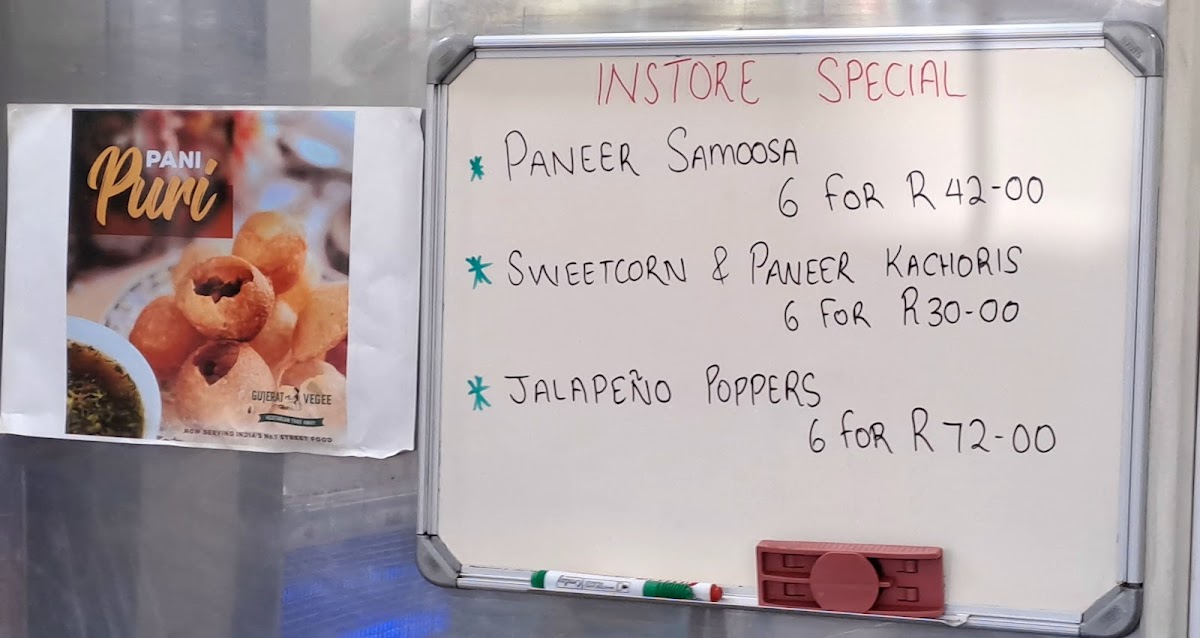 PANI
Puri
GUJERAT VEGEE
NOW SERVING INDIA'S No1 STREET FOOD
INSTORE SPECIAL
* PANEER SAMOOSA
6 FOR R42-00
* SWEETCORN & PANEER KACHORIS
6 FOR R30-00
* JALAPEÑO POPPERS
6 FOR R72-00